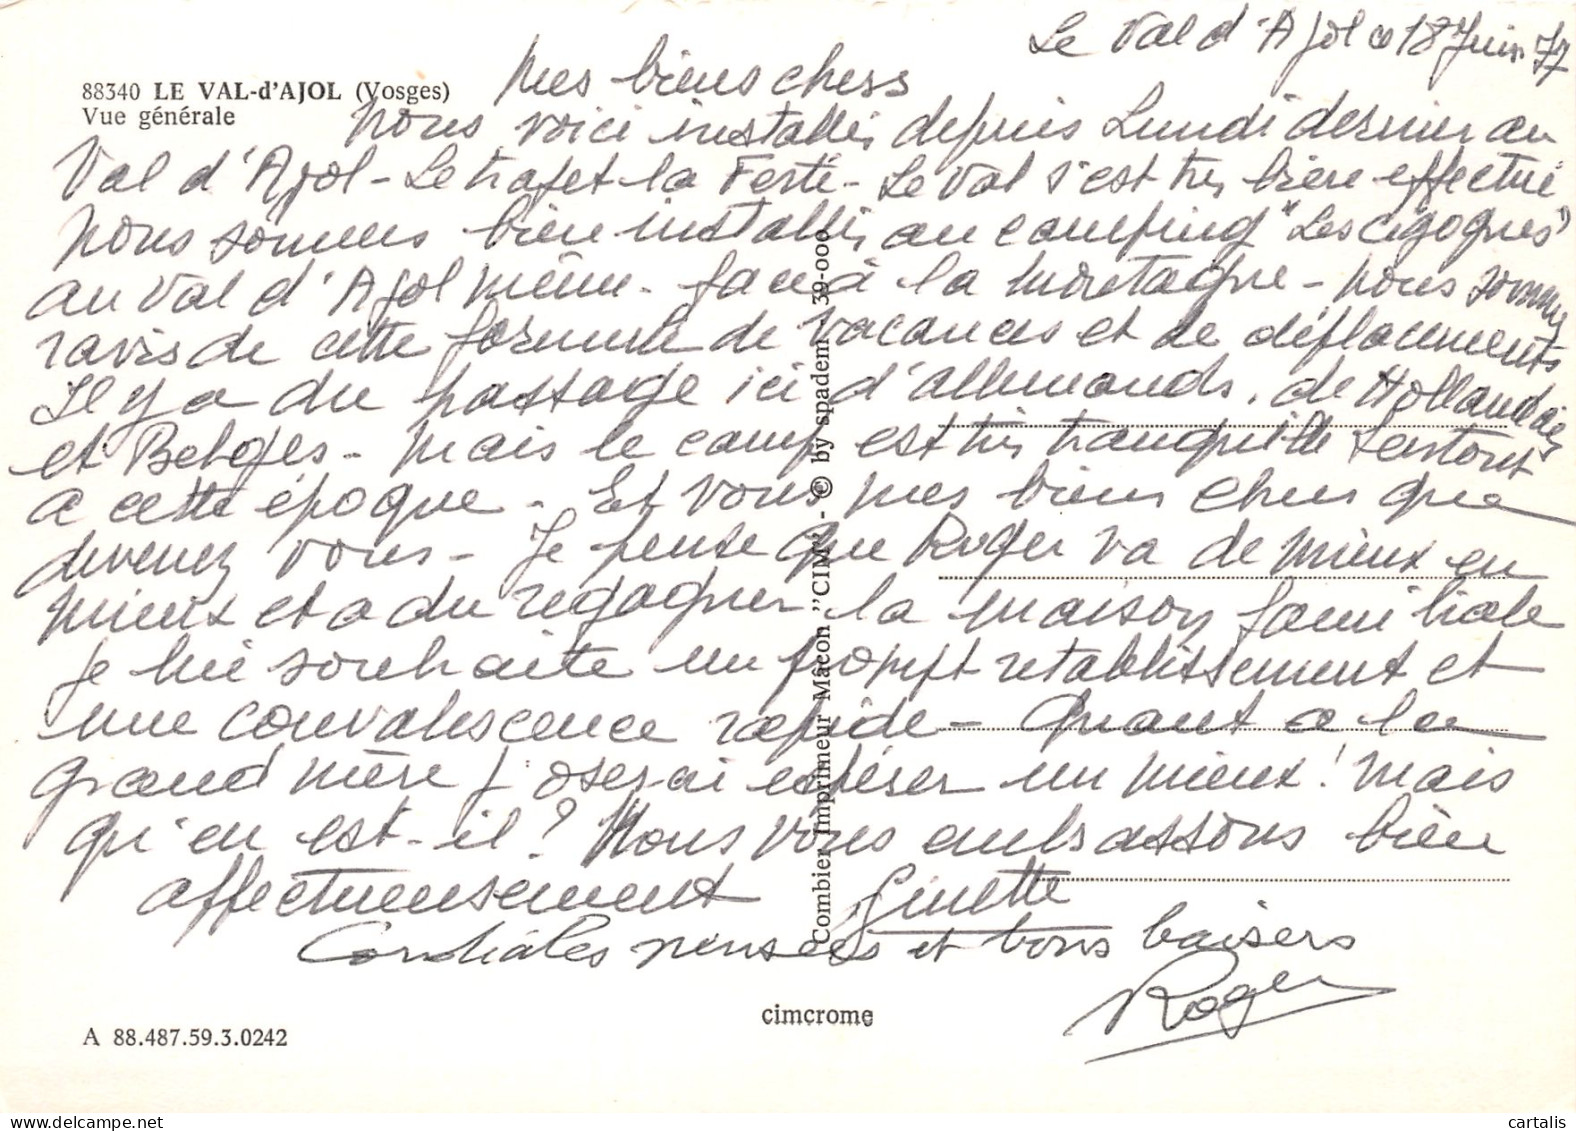 Le Val d'Ajol ce 18 Juin 77
88340 LE VAL-d'AJOL (Vosges)
Vue générale
Mes biens chers
Nous voici installés depuis Lundi dernier au
Val d'Ajol - Le trajet la Ferté - Le Val s'est très bien effectué
Nous sommes bien installés au camping "Les cigognes"
au Val d'Ajol même - face à la montagne - nous sommes
ravis de cette formule de vacances et de déplacements
Il y a du passage ici d'allemands, de Hollandais
et Belges - Mais le camp est très tranquille surtout
a cette époque - Et vous mes biens chers que
devenez vous - Je pense que Roger va de mieux en
mieux et a du regagner la maison familiale
je lui souhaite un prompt retablissement et
une convalescence rapide - Quant a la
grand mère j'oserai espérer un mieux! Mais
qu'en est-il? Nous vous embrassons bien
affectueusement Ginette
Cordiales pensées et bons baisers
Roger
Combier Imprimeur Mâcon "CIM" - © by spadem 39-000
cimcrome
A 88.487.59.3.0242
www.delcampe.net
cartalis